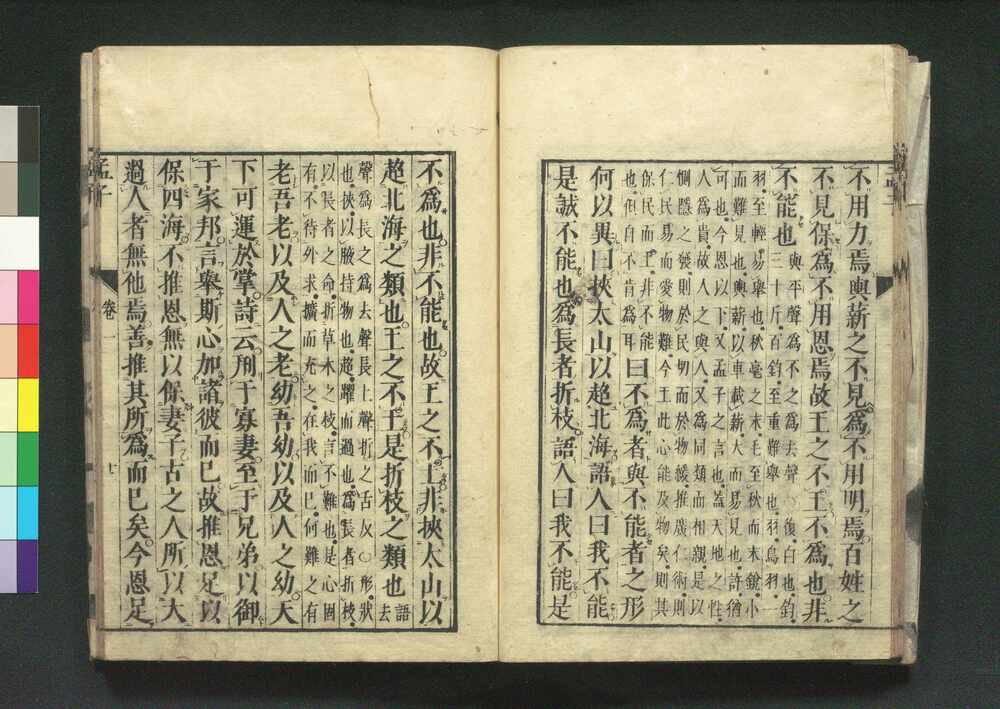 不用力焉輿薪之不見爲不用明焉百姓之
不見保爲不用恩焉故王之不王不爲也非
不能也
與平聲爲不之爲去聲○復白也鈞
三十斤百鈞至重難舉也羽鳥羽一
羽至輕易舉也秋毫之末毛至秋而末銳小
而難見也輿薪以車載薪大而易見也許猶
可也今恩以下又孟子之言也蓋天地之性
人爲貴故人之與人又爲同類而相親是以
惻隱之發則於民切而於物緩推廣仁術則
仁民易而愛物難今王此心能及物矣則其
保民而王非不能
也但自不肯爲耳
曰不爲者與不能者之形
何以異曰挾太山以超北海語人曰我不能
是誠不能也爲長者折枝語人曰我不能是
不爲也非不能也故王之不王非挾太山以
超北海之類也王之不王是折枝之類也
語去
聲爲長之爲去聲長上聲折之舌反○形狀
也挾以腋持物也超躍而過也爲長者折枝
以長者之命折草木之枝言不難也是心固
有不待外求擴而充之在我而已何難之有
老吾老以及人之老幼吾幼以及人之幼天
下可運於掌詩云刑于寡妻至于兄弟以御
于家邦言舉斯心加諸彼而已故推恩足以
保四海不推恩無以保妻子古之人所以大
過人者無他焉善推其所爲而已矣今恩足
孟子
卷一